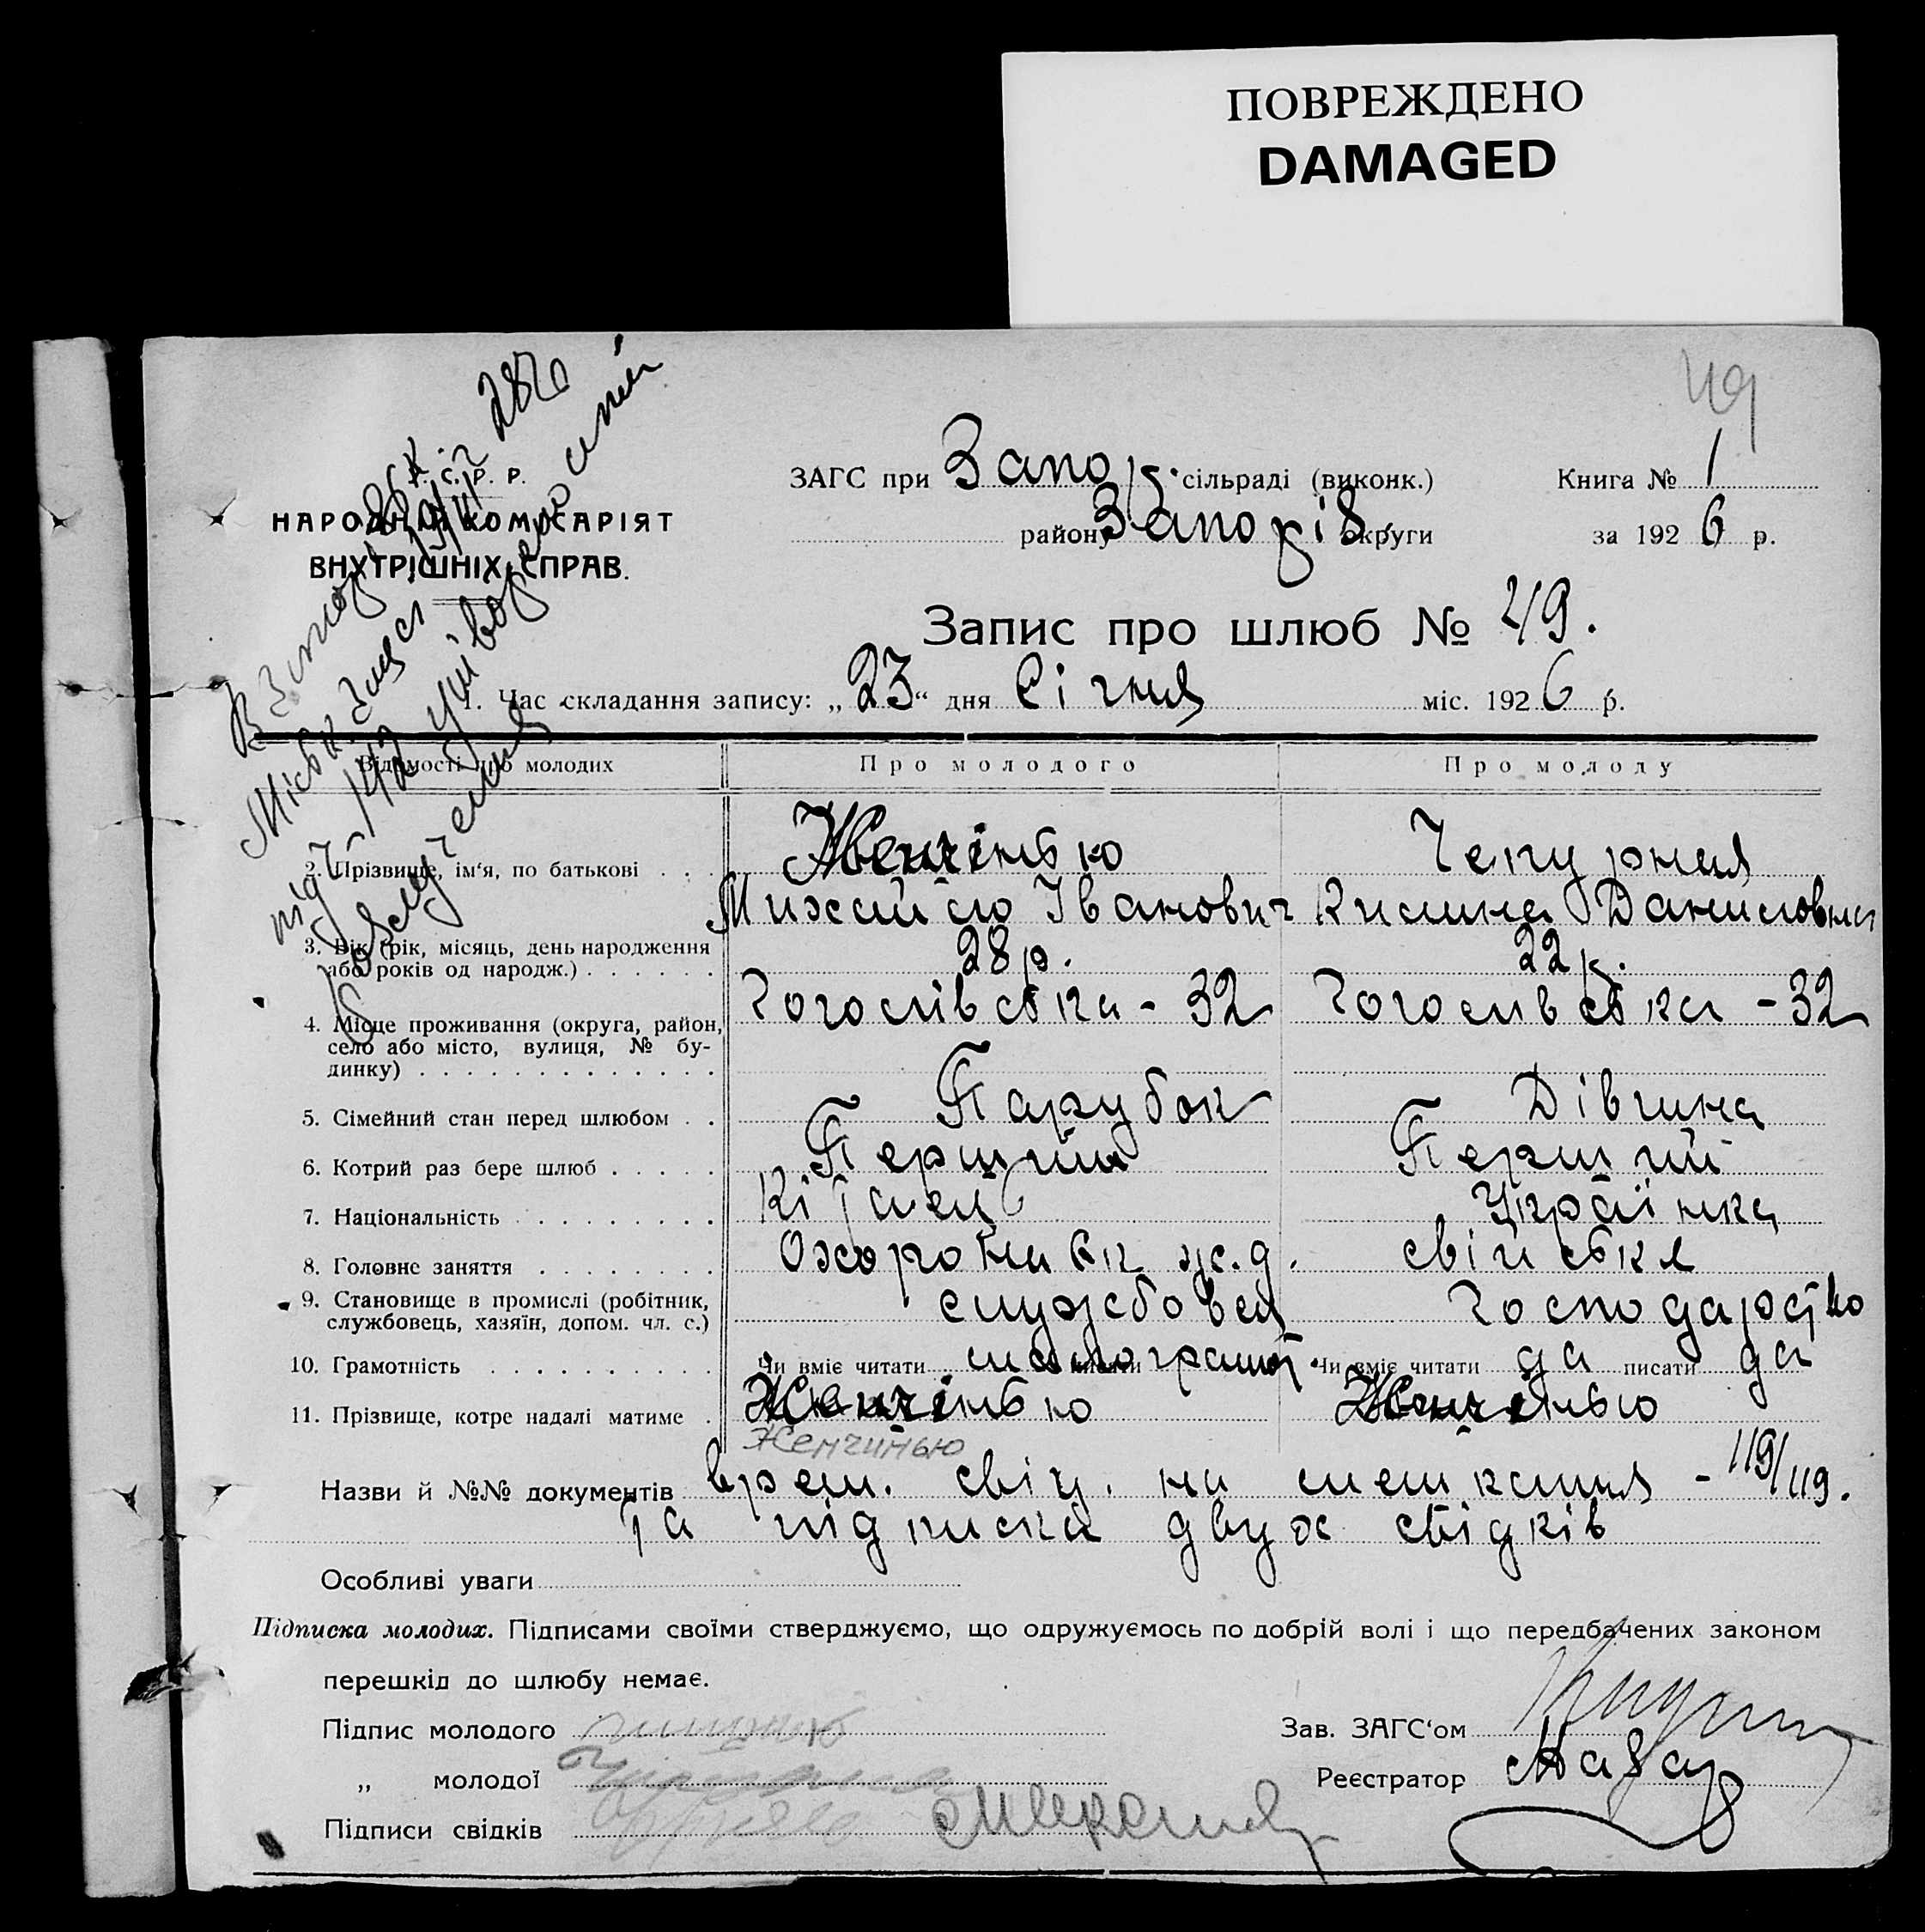 ПОВРЕЖДЕНО
DAMAGED
49
С. Р. Р.
НАРОДНІЙ КОМІСАРІЯТ
ВНУТРІШНІХ СПРАВ.
ЗАГС при Запор. сільраді (виконк.)
Книга № 1
району Запорів округи
за 1926 р.
Запис про шлюб № 49.
1. Час складання запису: „23“ дня Січня міс. 1926 р.
Відомості про молодих
Про молодого
Про молоду
2. Прізвище, ім'я, по батькові . . .
Женчінью
Чепурная
Михайло Іванович
Килина Даниловна
3. Вік (рік, місяць, день народження
або років од народж.) . . . . . .
28 р.
22 р.
4. Місце проживання (округа, район,
село або місто, вулиця, № бу-
динку) . . . . . . . . . . . . .
Гоголівська - 32
Гоголивська - 32
5. Сімейний стан перед шлюбом . .
Парубок
Дівчина
6. Котрий раз бере шлюб . . . . .
Перший
Перший
7. Національність . . . . . . . . .
Кітаєць
Українка
8. Головне заняття . . . . . . . .
Охоронник ж.д.
свійське
9. Становище в промислі (робітник,
службовець, хазяїн, допом. чл. с.)
службовец
господарство
10. Грамотність . . . . . . . . . .
Чи вміє читати малограмот. писати
Чи вміє читати да писати да
11. Прізвище, котре надалі матиме .
Женчінью
Женчінью
Женчинью
Назви й №№ документів врем. свід. на мешкання - 119/119.
та підписка двух свідків
Особливі уваги
Підписка молодих. Підписами своїми стверджуємо, що одружуємось по добрій волі і що передбачених законом
перешкід до шлюбу немає.
Підпис молодого
Зав. ЗАГС'ом
„ молодої
Реєстратор
Підписи свідків